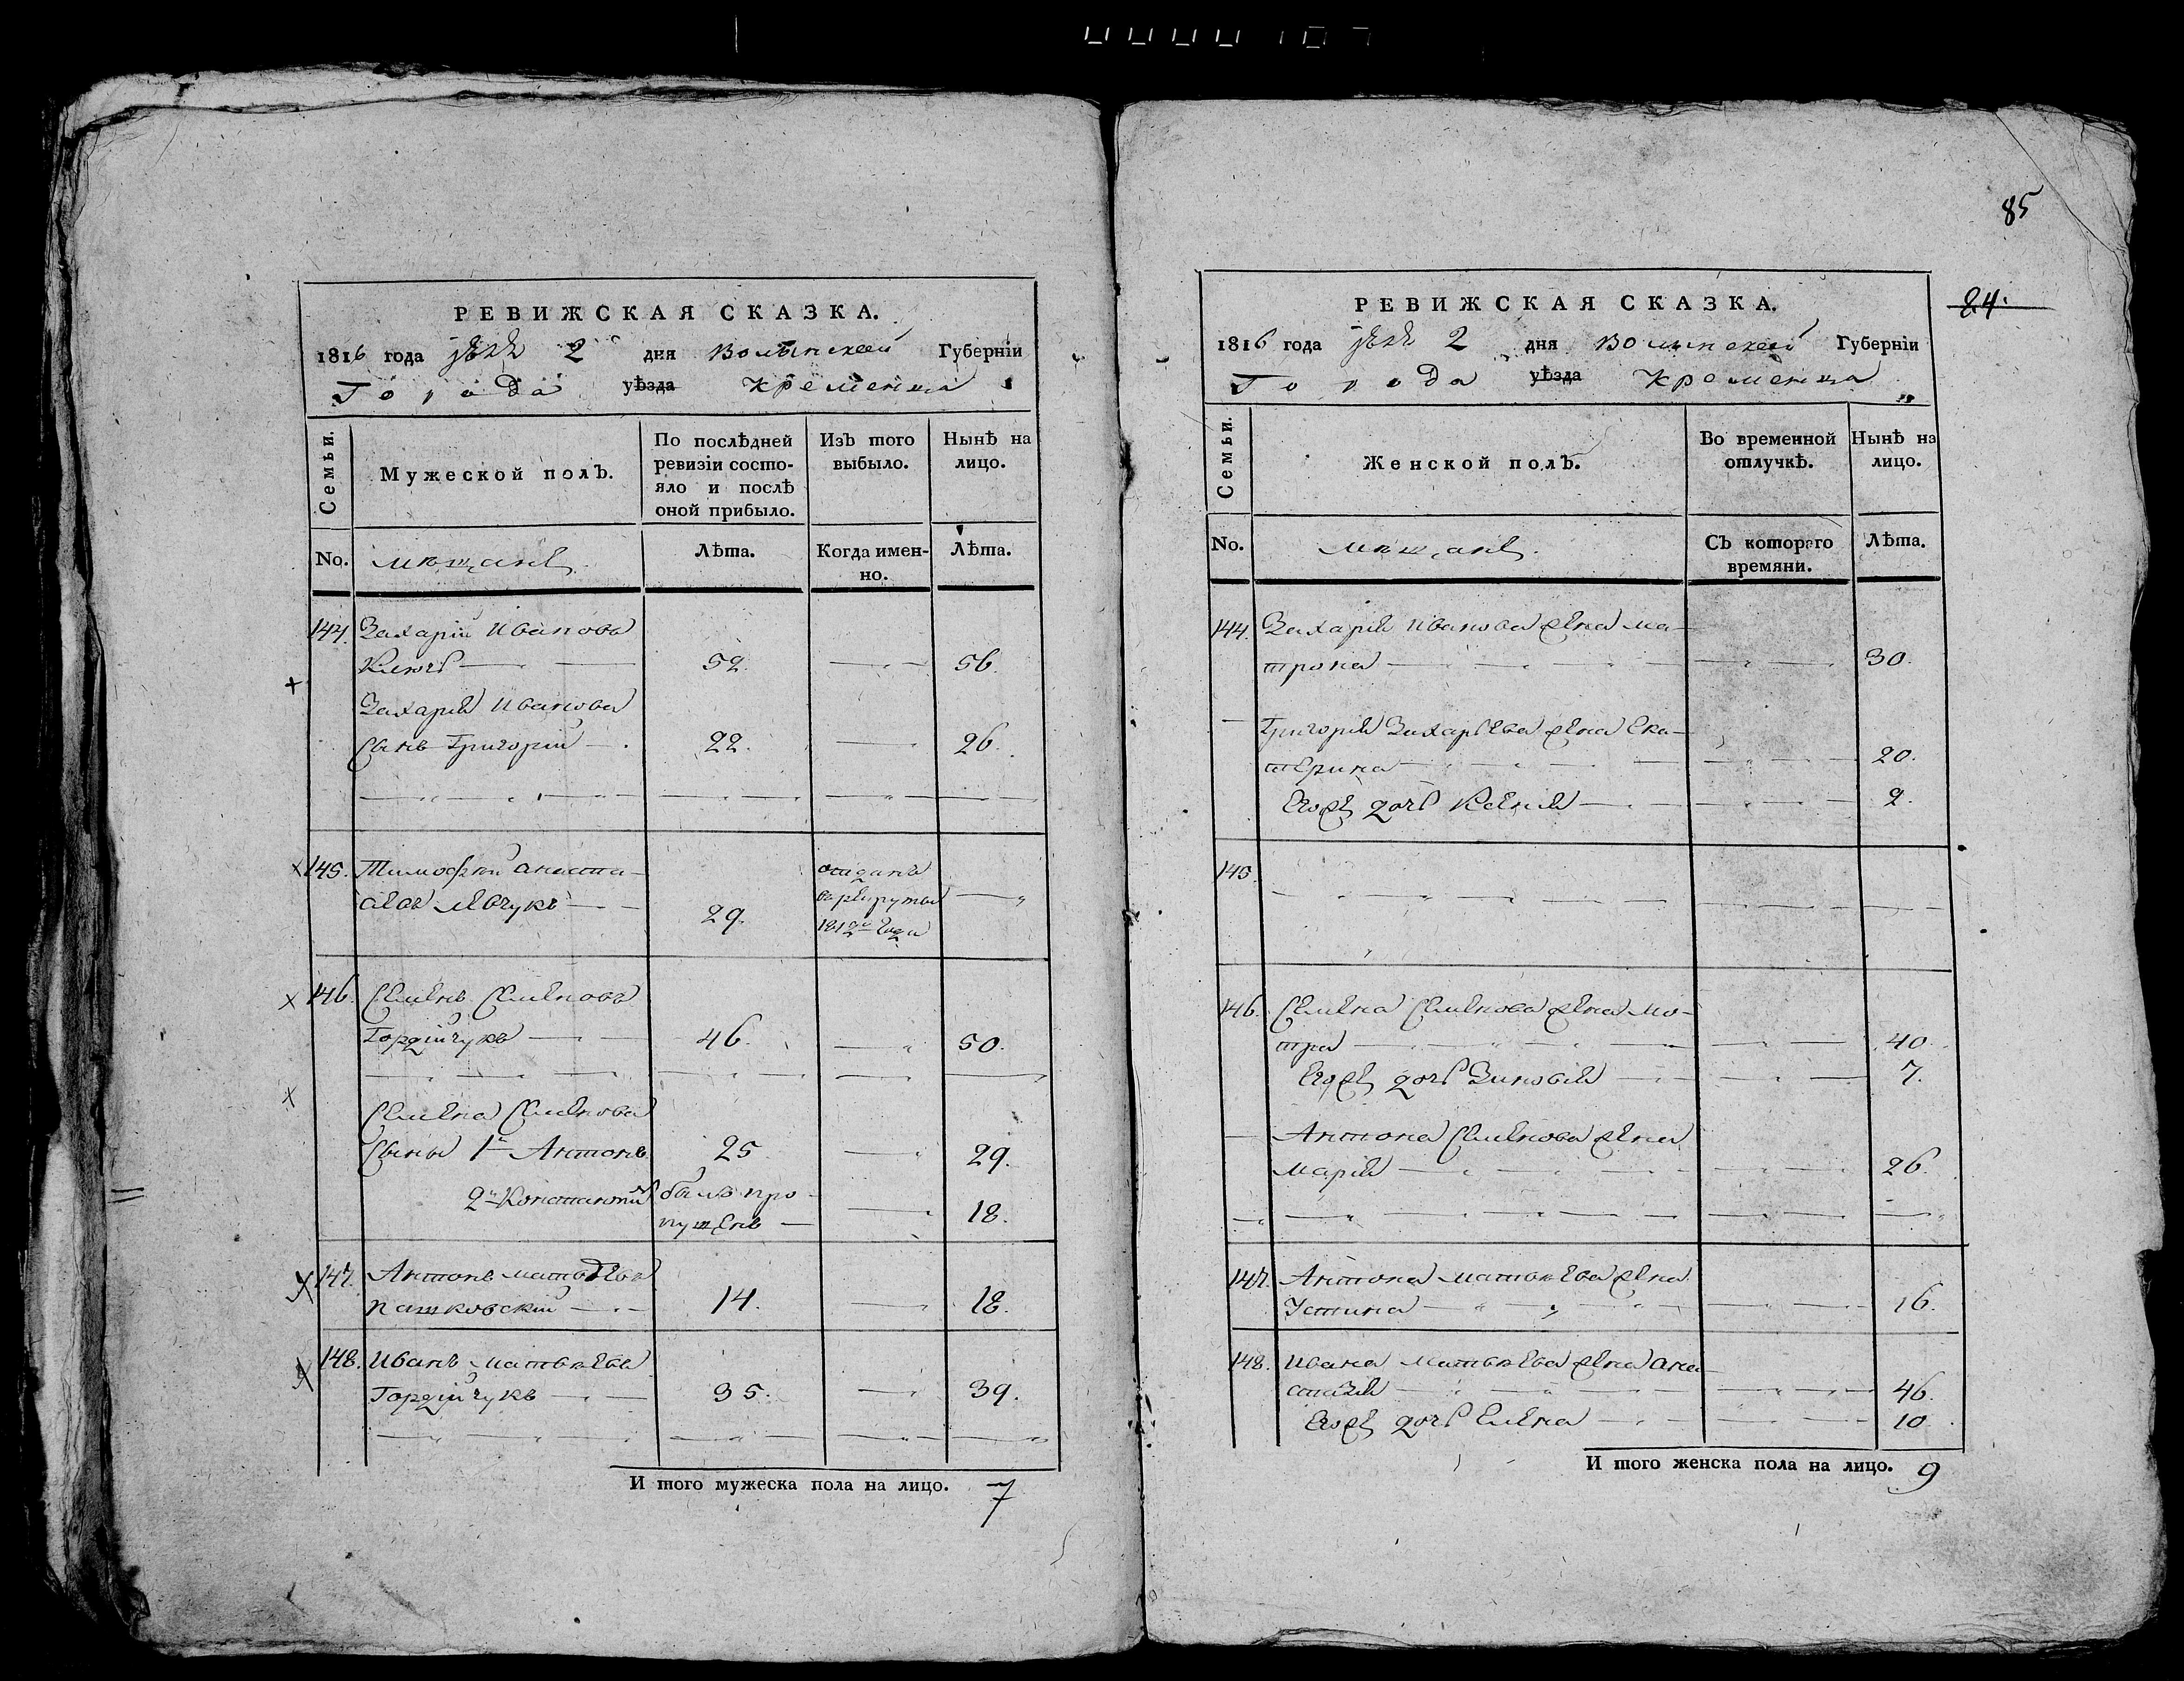 85
РЕВИЖСКАЯ СКАЗКА.
1816 года 2 дня Волынской Губерніи
Города уѣзда Кременца
Семьи.
Мужеской полъ.
По послѣдней
ревизіи состо-
яло и послѣ
оной прибыло.
Изъ того
выбыло.
Нынѣ на
лицо.
No.
мѣщанѣ
Лѣта.
Когда имен-
но.
Лѣта.
144. Захарій Ивановъ
Ключь 52. 56.
Захарія Иванова
Сынъ Григорій 22. 26.
145. Тимофѣй отданъ
29. въ рекруты
1812го года
146. Семенъ Семеновъ
Гордійчукъ 46. 50.
Семена Семенова
Сыны 1й Антонъ 25 29.
2й Константій былъ про-
пущенъ 18.
147. Антонъ Матвѣевъ
Пашковскій 14. 18.
148. Иванъ Матвѣевъ
Гордійчукъ 35. 39.
И того мужеска пола на лицо. 7
РЕВИЖСКАЯ СКАЗКА. 24.
1816 года 2 дня Волынской Губерніи
Города уѣзда Кременца
Семьи.
Женской полъ.
Во временной
отлучкѣ.
Нынѣ на
лицо.
No.
мѣщанѣ.
Съ котораго
времяни.
Лѣта.
144. Захарія Иванова жена Ма-
трона 30.
Григорія Захарьева жена Ека-
терина 20.
Егоже дочь Ксенія 2.
145.
146. Семена Семенова жена Мо-
тря 40.
Егоже дочь Зиновія 7.
Антона Семенова жена
Марія 26.
147. Антона Матвѣева жена
Устина 16.
148. Ивана Матвѣева жена Ана-
стазія 46.
Егоже дочь Елена 10.
И того женска пола на лицо. 9